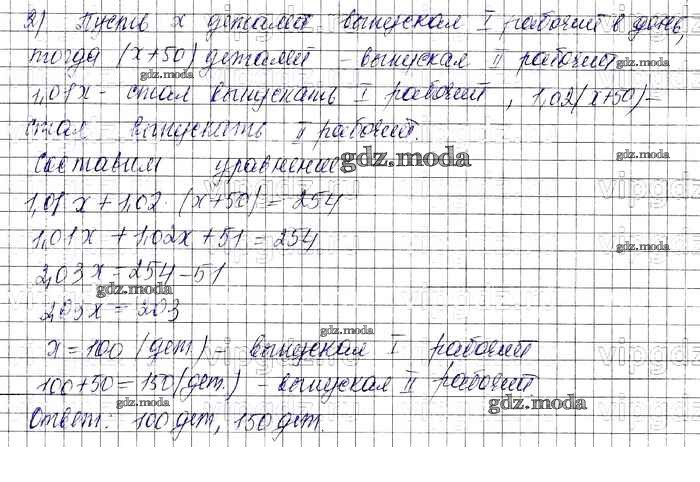 3) Пусть x деталей выпускал I рабочий в день,
тогда (x+50) деталей - выпускал II рабочий
gdz.moda gdz.moda
1,01x - стал выпускать I рабочий, 1,02(x+50) -
стал выпускать II рабочий.
Составим уравнение
gdz.moda
1,01x + 1,02 · (x+50) = 254
gdz.moda
1,01x + 1,02x + 51 = 254
gdz.moda
2,03x = 254 - 51
gdz.moda
2,03x = 203
gdz.moda
x = 100 (дет.) - выпускал I рабочий
100 + 50 = 150 (дет.) - выпускал II рабочий
gdz.moda gdz.moda
Ответ: 100 дет, 150 дет.